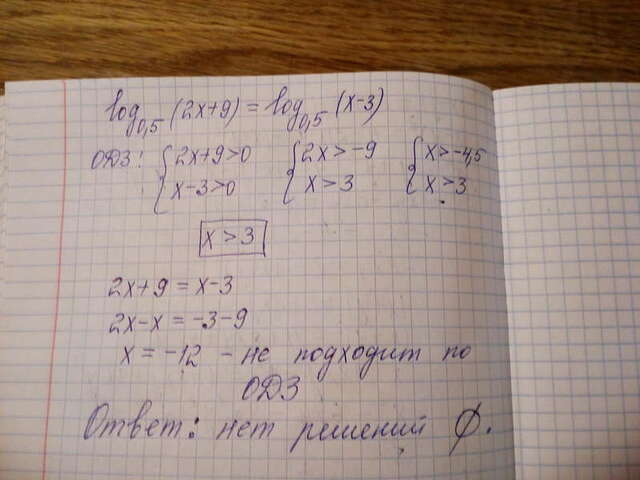 log₀,₅ (2x+9) = log₀,₅ (x-3)
ОДЗ: { 2x+9>0 { 2x>-9 { x>-4,5
{ x-3>0 { x>3 { x>3
x>3
2x+9 = x-3
2x-x = -3-9
x = -12 - не подходит по
ОДЗ
Ответ: нет решений ∅.